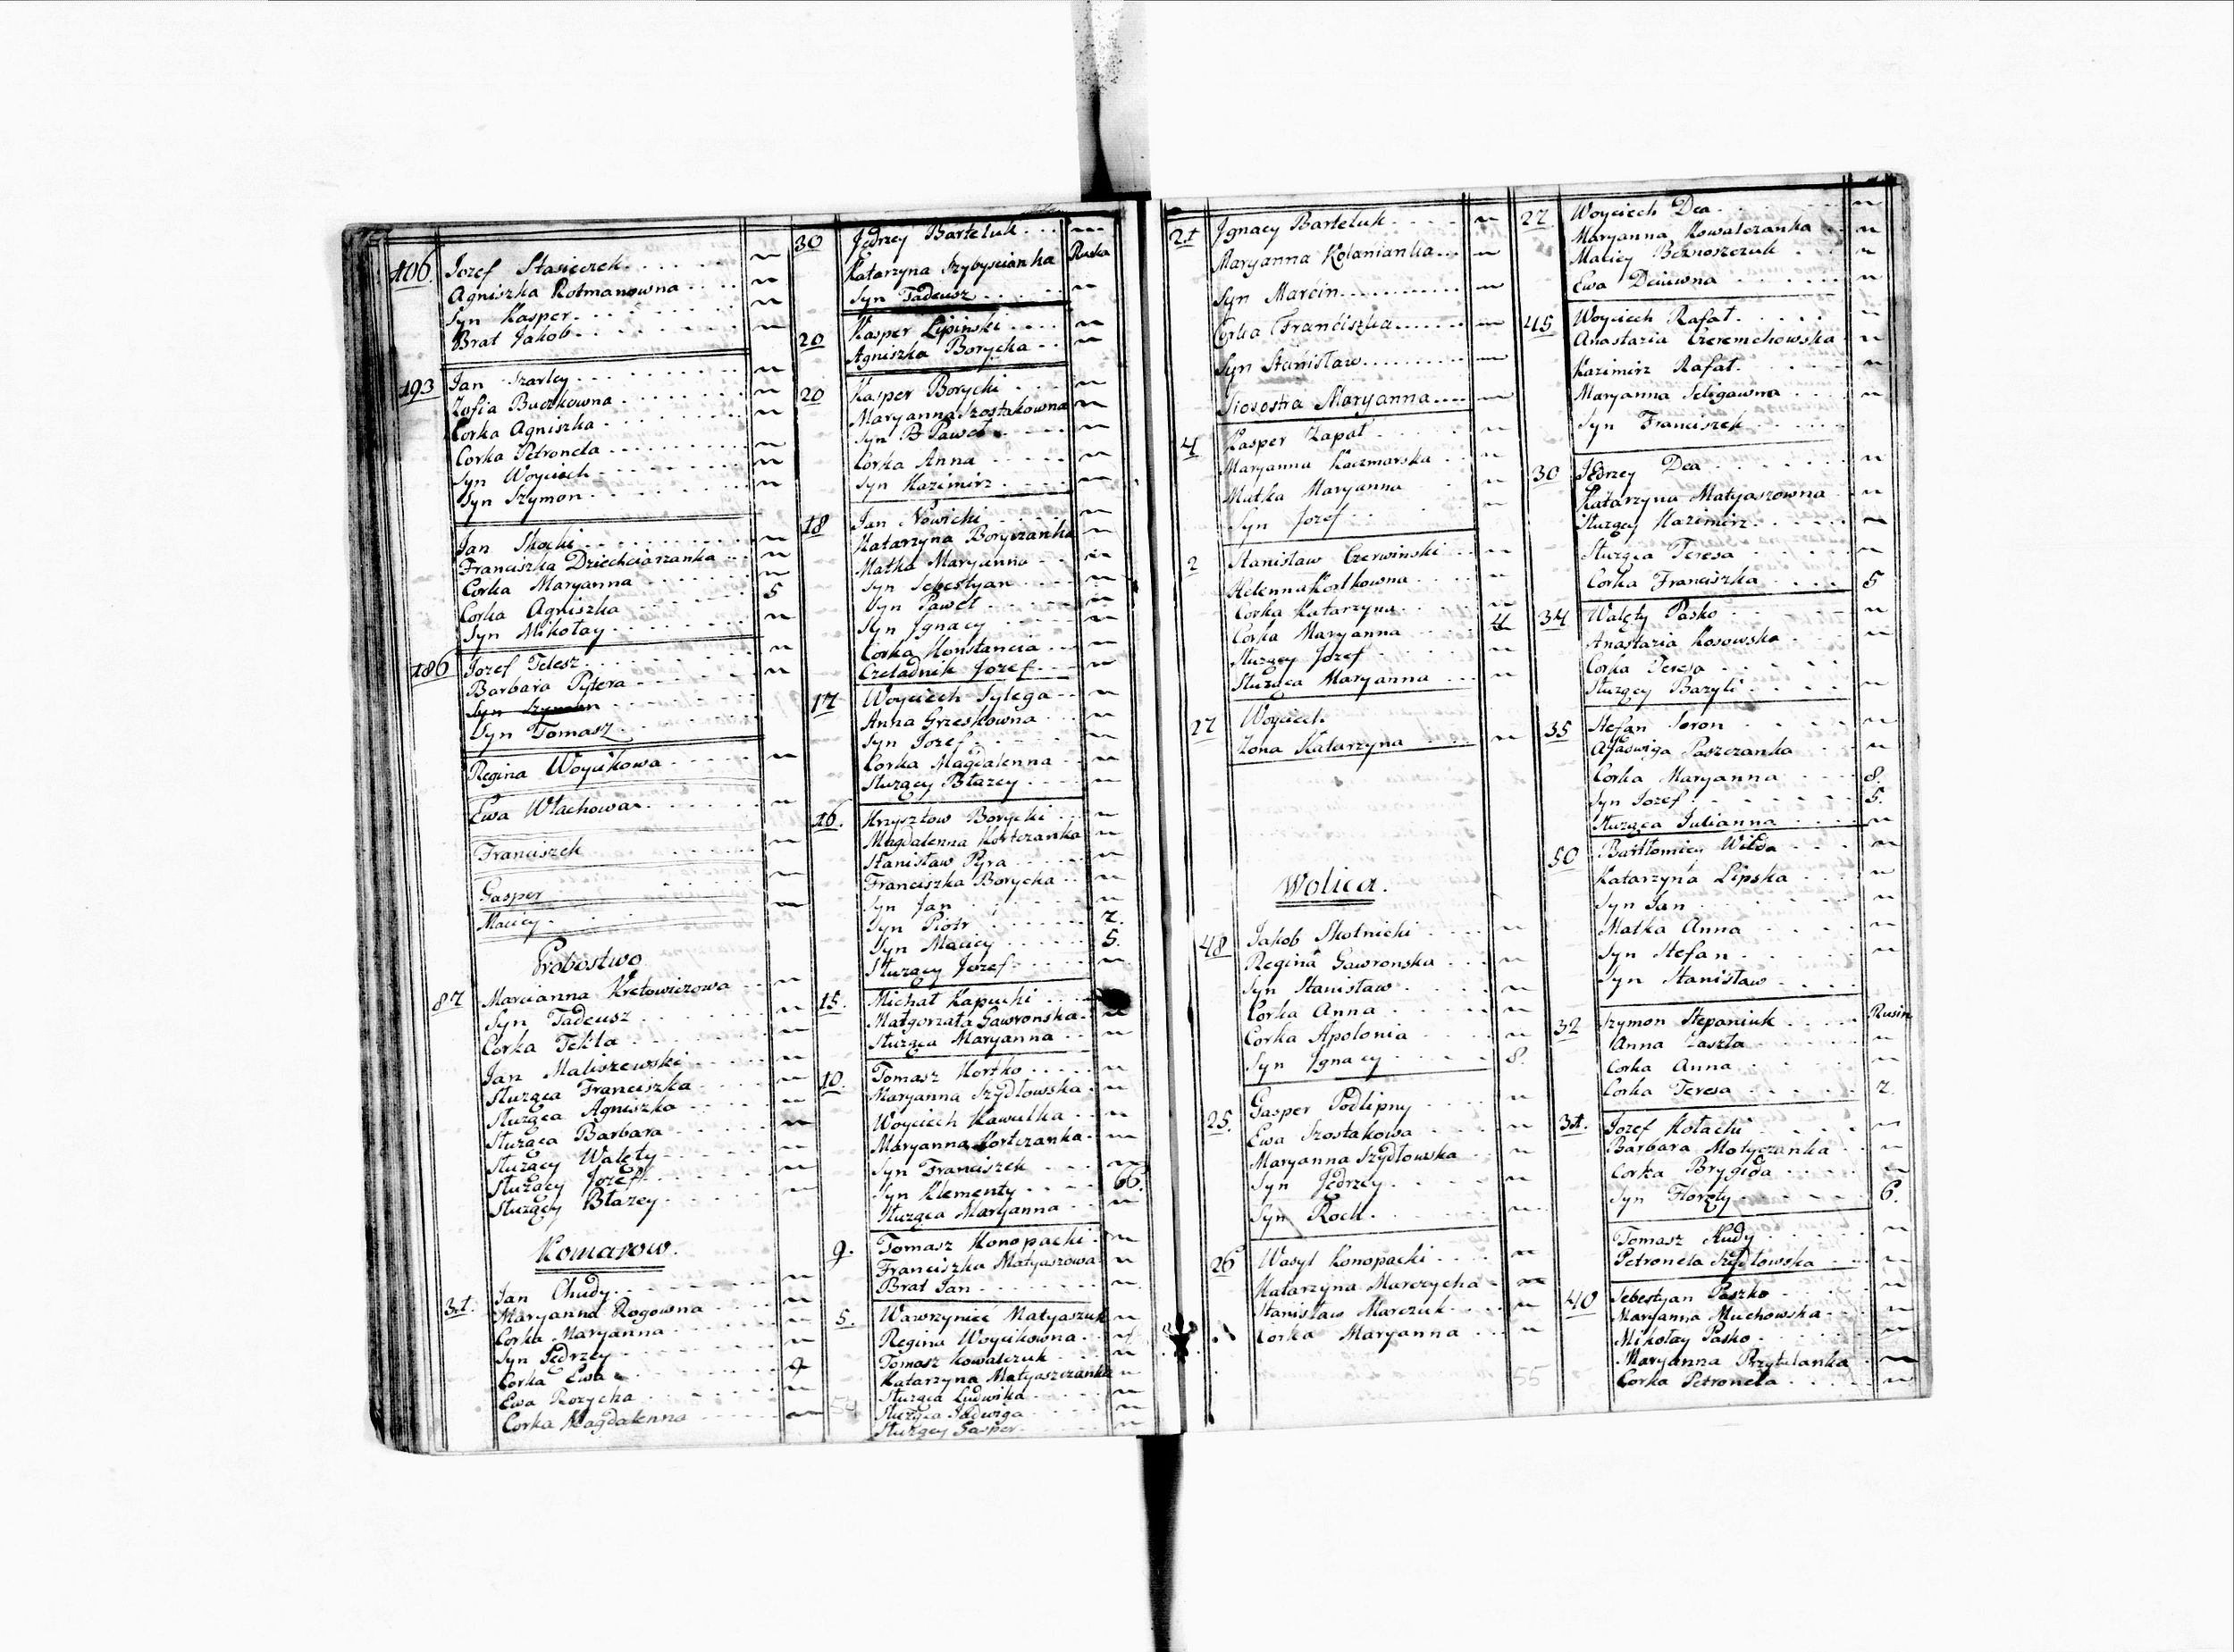 106. Jozef Stasieczek
Agniszka Rotmanowna
Syn Kasper
Brat Jakob
193 Jan Szarley
Zofia Buczkowna
Corka Agniszka
Corka Petronela
Syn Woyciech
Syn Szymon
Jan Skocki
Franciszka Dziechciarzanka
Corka Maryanna
Corka Agniszka 5
Syn Mikołay
186 Jozef Telesz
Barbara Pytera
Syn Szymon
Syn Tomasz
Regina Woycikowa
Ewa Włachowa
Franciszek
Gasper
Maciey
Probostwo
87 Marcianna Kretowiczowa
Syn Tadeusz
Corka Tekla
Jan Maliszewski
Służąca Franciszka
Służąca Agniszka
Służąca Barbara
Służący Walęty
Służący Jozef
Służący Błazey
Komarow.
31. Jan Chudy
Maryanna Rogowna
Corka Maryanna
Syn Jędrzey
Corka Ewa 9
Ewa Borycha
Corka Magdalenna
30 Jędrzey Barteluk
Katarzyna Szybyscianka Ruska
Syn Tadeusz
20 Kasper Lipinski
Agniszka Borycka
20 Kasper Borycki
Maryanna Szostakowna
Syn Paweł
Corka Anna
Syn Kazimirz
18 Jan Nowicki
Katarzyna Boryczanka
Matka Maryanna
Syn Sebestyan
Syn Paweł
Syn Jgnacy
Corka Konstancia
Czeladnik Jozef
17 Woyciech Sylega
Anna Grzeskowna
Syn Jozef
Corka Magdalenna
Służący Błazey
16. Krzysztow Borycki
Magdalenna Kortczanka
Stanisław Pyra
Franciszka Borycka
Syn Jan
Syn Piotr 7.
Syn Maciey 5.
Służący Jozef
15. Michał Kapucki
Małgorzata Gawronska
Służąca Maryanna
10. Tomasz Kortko
Maryanna Szydłowska
Woyciech Kawulka
Maryanna Kortczanka
Syn Franciszek
Syn Klementy 66.
Służąca Maryanna
9. Tomasz Konopacki
Franciszka Matyaszowa
Brat Jan
5. Wawrzyniec Matyaszuk
Regina Woycikowna
Tomasz Kowalczuk
Katarzyna Matyaszczanka
Służąca Ludwika
54 Służąca Jadwiga
Służący Gasper
21 Jgnacy Barteluk
Maryanna Kolanianka
Syn Marcin
Corka Franciszka
Syn Stanisław
Siosostra Maryanna
4 Kasper Łapał
Maryanna Kaczmarska
Matka Maryanna
Syn Jozef
2 Stanisław Czerwinski
Helenna Kortkowna
Corka Katarzyna
Corka Maryanna 4
Służący Jozef
Służąca Maryanna
27 Woyciech
Zona Katarzyna
Wolica.
48 Jakob Skotnicki
Regina Gawronska
Syn Stanisław
Corka Anna
Corka Apolonia
Syn Jgnacy 8.
25. Gasper Podlipny
Ewa Szostakowa
Maryanna Szydłowska
Syn Jędrzey
Syn Roch
26 Wasyl Konopacki
Katarzyna Marczycha
Stanisław Marczuk
Corka Maryanna
55
27 Woyciech Dea
Maryanna Kowalczanka
Maciey Beznoszczuk
Ewa Deiuwna
45 Woyciech Rafał
Anastazia Czeremchowska
Kazimirz Rafał
Maryanna Seligawna
Syn Franciszek
30 Jędrzey Dea
Katarzyna Matyaszowna
Służący Kazimirz
Służąca Teresa
Corka Franciszka 5
34 Walęty Pasko
Anastazia Kosowska
Corka Teresa
Służący Bazyli
35 Stefan Soron
Jadwiga Paszczanka
Corka Maryanna 8.
Syn Jozef 5.
Służąca Julianna
50 Bartłomiey Wilda
Katarzyna Lipska
Syn Jan
Matka Anna
Syn Stefan
Syn Stanisław
32 Szymon Stepaniuk Rusin
Anna Łaszta
Corka Anna
Corka Teresa 7.
31. Jozef Kołacki
Barbara Motyczanka
Corka Brygida
Syn Floręty 6.
Tomasz Kudy
Petronela Szydłowska
40 Sebestyan Paszko
Maryanna Muchowska
Mikołay Pasko
Maryanna Przytulanka
Corka Petronela